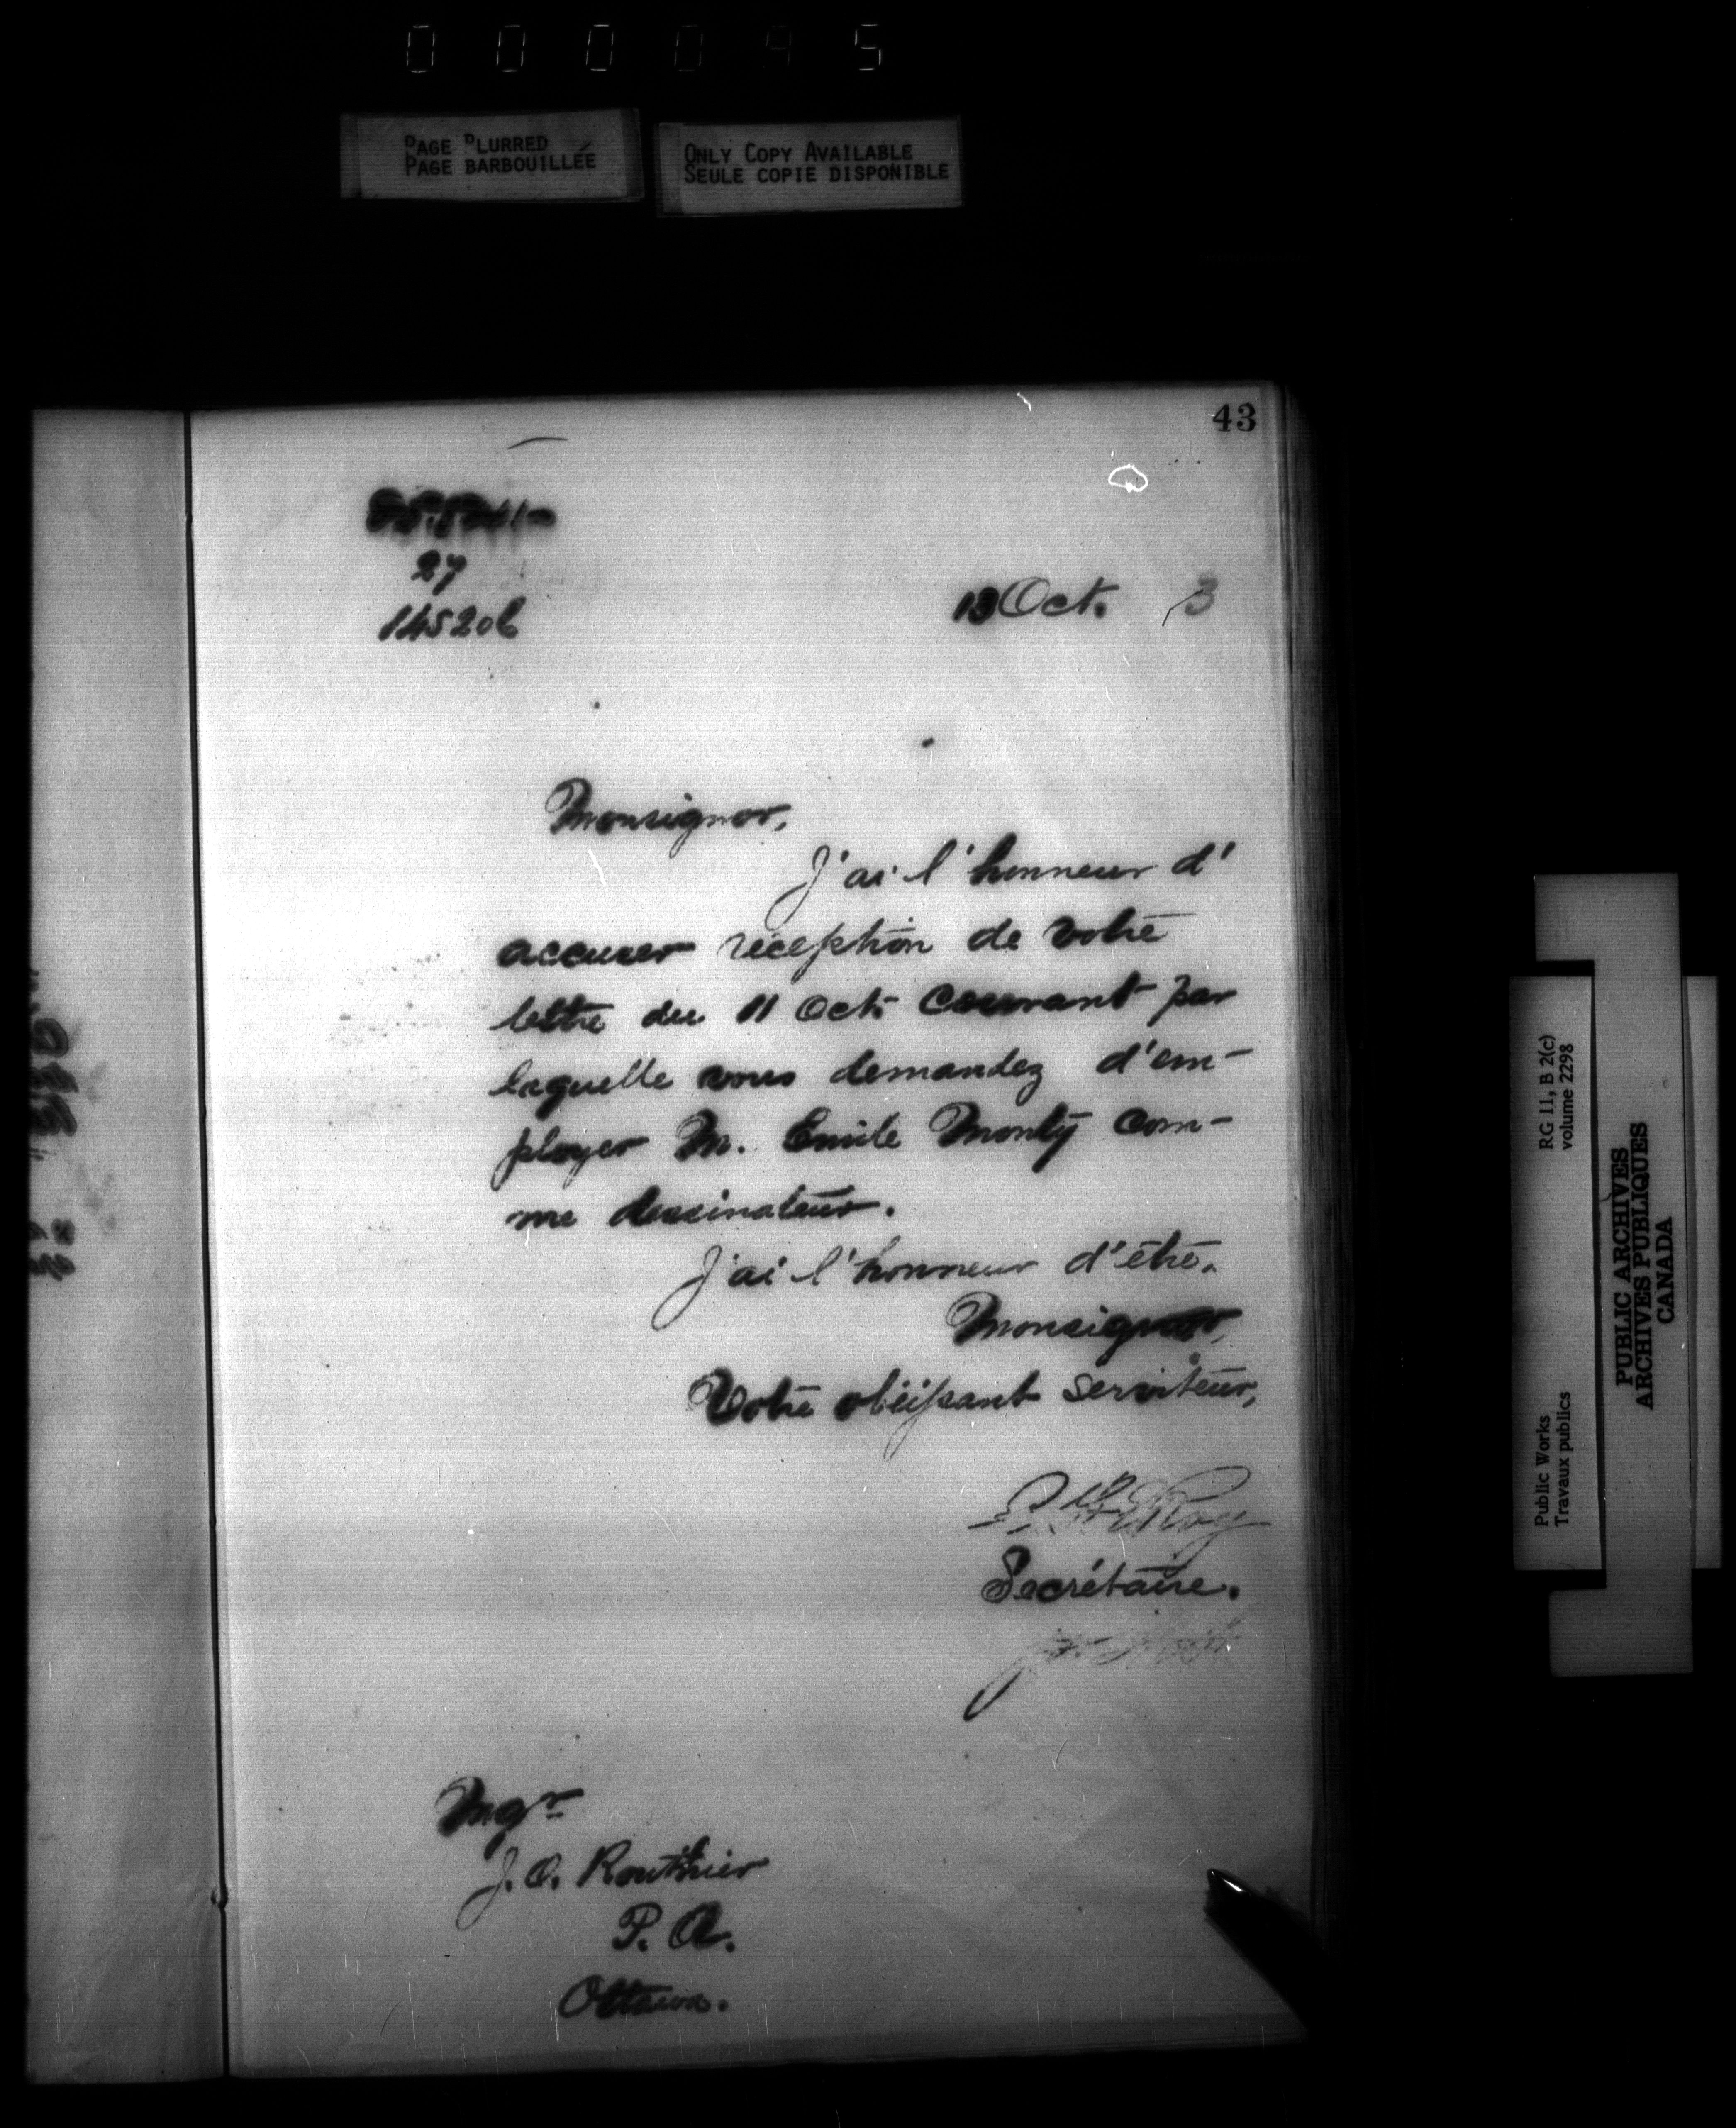 0 0 0 0 4 5
PAGE BLURRED
PAGE BARBOUILLÉE
ONLY COPY AVAILABLE
SEULE COPIE DISPONIBLE
43
27
145206
13 Oct. 3
Monsignor,
J'ai l'honneur d'
accuser réception de votre
lettre du 11 Oct. courant par
laquelle vous demandez d'em-
ployer M. Emile Monty com-
me dessinateur.
J'ai l'honneur d'être,
Monsignor,
Votre obéissant serviteur,
Roy
Secrétaire.
Mgr
J.O. Routhier
P. A.
Ottawa.
RG 11, B 2(c)
volume 2298
Public Works
Travaux publics
PUBLIC ARCHIVES
ARCHIVES PUBLIQUES
CANADA